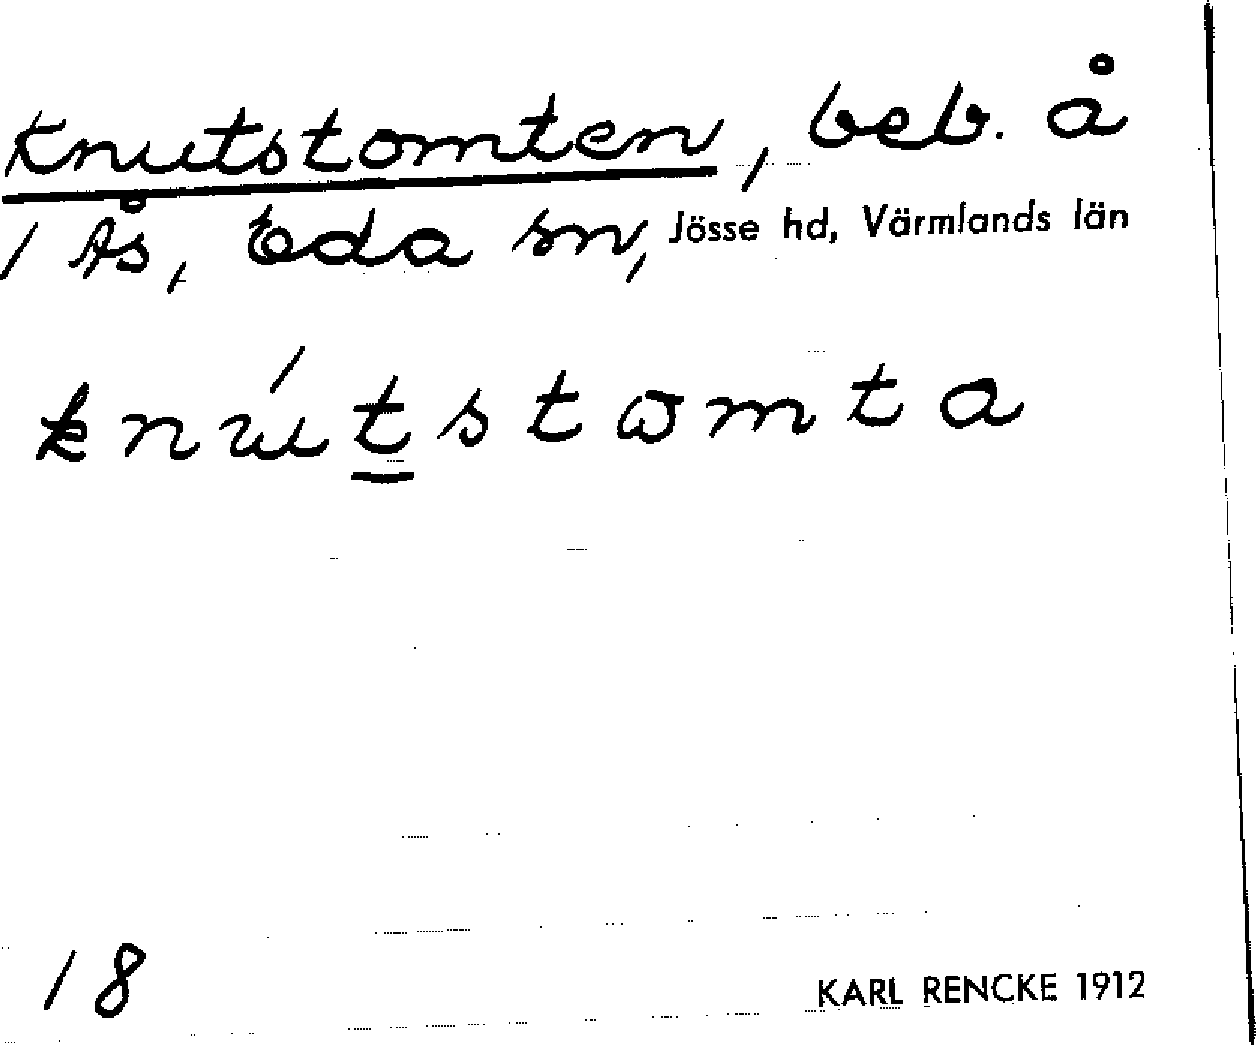 Knutstomten, beb. å
1 Ås, Eda sn, Jösse hd, Värmlands län
knútstωmta
18
KARL RENCKE 1912